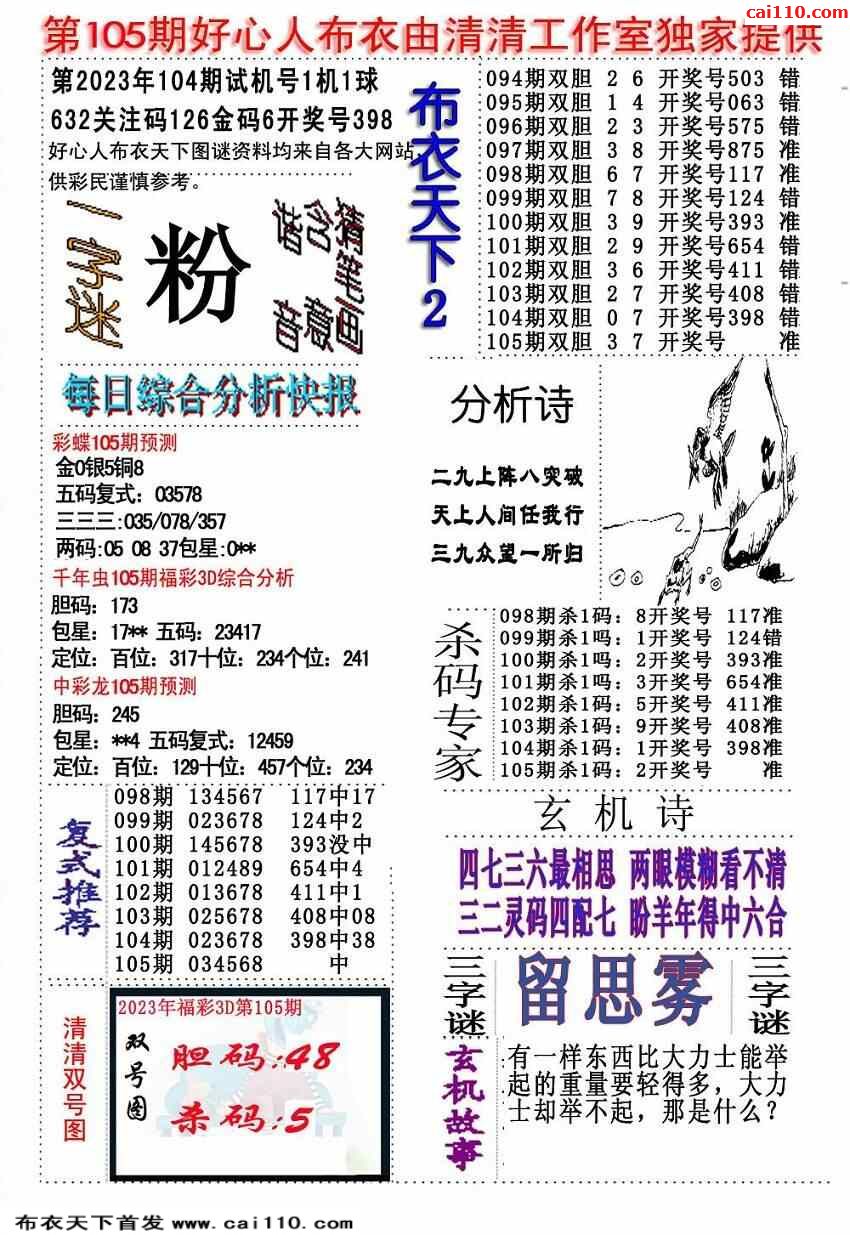 cai110.com
第105期好心人布衣由清清工作室独家提供
第2023年104期试机号1机1球
632关注码126金码6开奖号398
好心人布衣天下图谜资料均来自各大网站,
供彩民谨慎参考。
一字迷
粉
谐音
含意
猜笔画
布衣天下2
094期双胆 2 6 开奖号503 错
095期双胆 1 4 开奖号063 错
096期双胆 2 3 开奖号575 错
097期双胆 3 8 开奖号875 准
098期双胆 6 7 开奖号117 准
099期双胆 7 8 开奖号124 错
100期双胆 3 9 开奖号393 准
101期双胆 2 9 开奖号654 错
102期双胆 3 6 开奖号411 错
103期双胆 2 7 开奖号408 错
104期双胆 0 7 开奖号398 错
105期双胆 3 7 开奖号 准
每日综合分析快报
彩蝶105期预测
金0银5铜8
五码复式：03578
三三三:035/078/357
两码:05 08 37包星:0**
千年虫105期福彩3D综合分析
胆码：173
包星：17** 五码：23417
定位：百位：317十位：234个位：241
中彩龙105期预测
胆码：245
包星：**4 五码复式：12459
定位：百位：129十位：457个位：234
分析诗
二九上阵八突破
天上人间任我行
三九众望一所归
杀码专家
098期杀1码：8开奖号 117准
099期杀1吗：1开奖号 124错
100期杀1吗：2开奖号 393准
101期杀1吗：3开奖号 654准
102期杀1码：5开奖号 411准
103期杀1码：9开奖号 408准
104期杀1码：1开奖号 398准
105期杀1码：2开奖号 准
复式推荐
098期 134567 117中17
099期 023678 124中2
100期 145678 393没中
101期 012489 654中4
102期 013678 411中1
103期 025678 408中08
104期 023678 398中38
105期 034568 中
玄机诗
四七三六最相思 两眼模糊看不清
三二灵码四配七 盼羊年得中六合
三字谜
留思雾
三字谜
清清双号图
2023年福彩3D第105期
双号图
胆码:48
杀码:5
玄机故事
有一样东西比大力士能举
起的重量要轻得多，大力
士却举不起，那是什么？
布衣天下首发 www.cai110.com